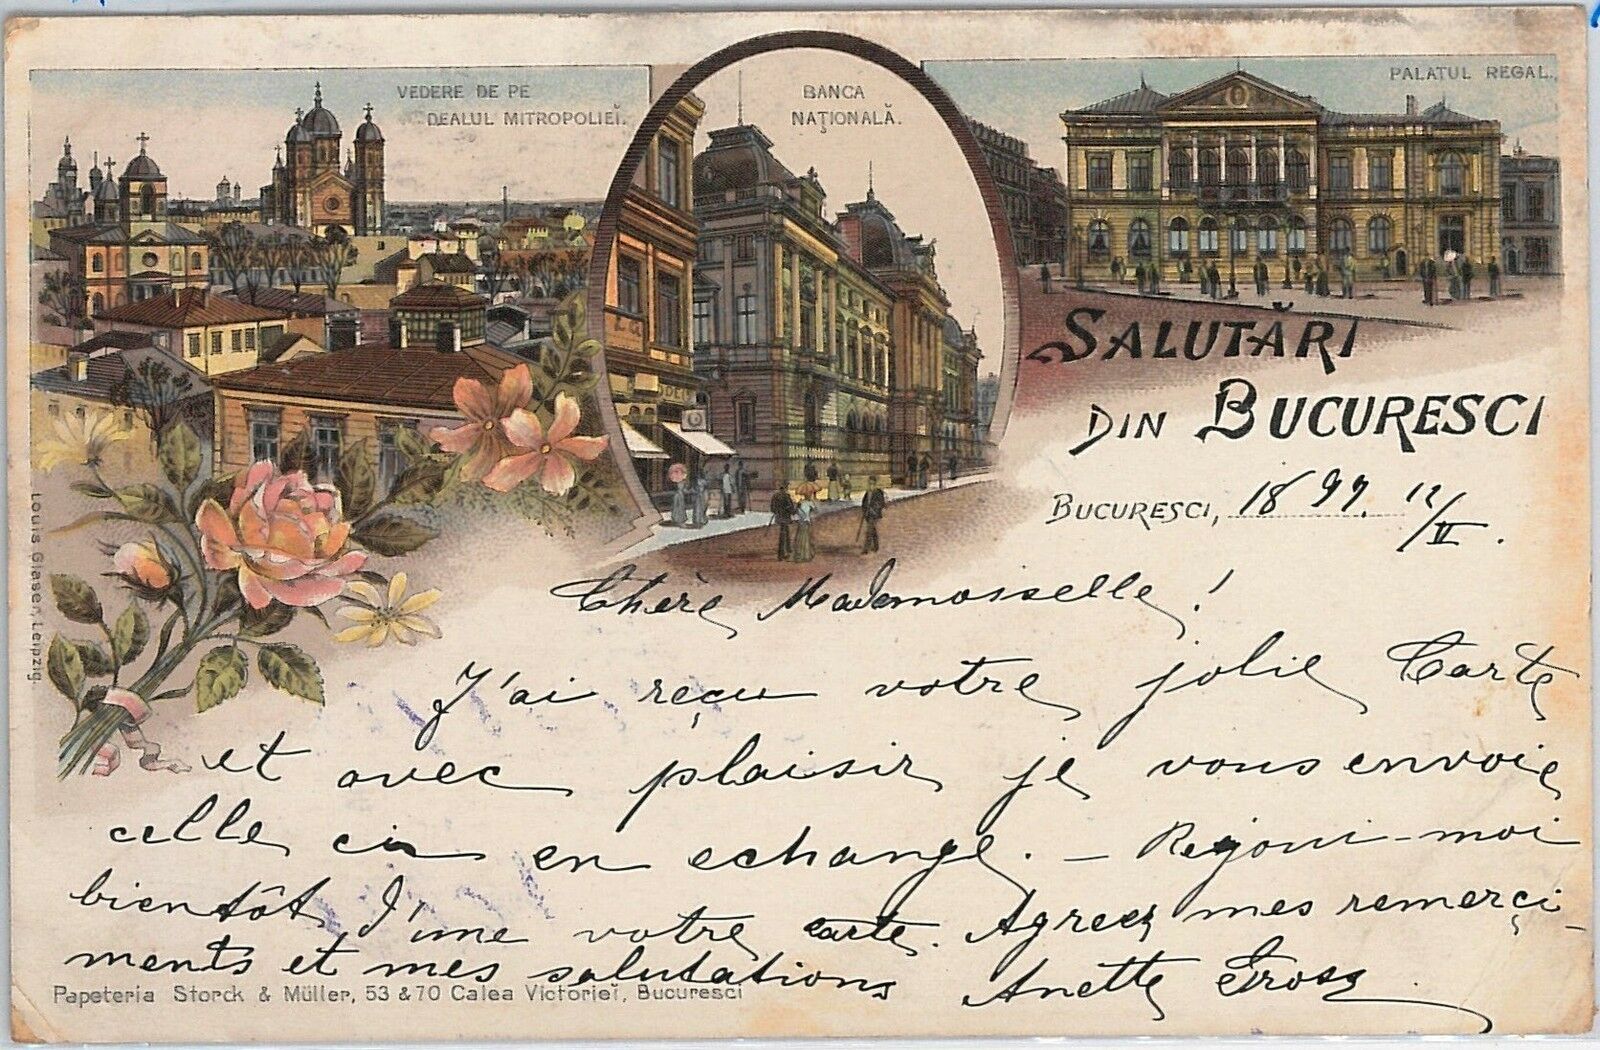 VEDERE DE PE
DEALUL MITROPOLIEĬ.
BANCA
NAŢIONALĂ.
PALATUL REGAL.
SALUTĂRI
DIN BUCURESCI
BUCURESCI, 1899. 12/II.
Chère Mademoisselle!
J'ai reçu votre jolie Carte
et avec plaisir je vous envoie
celle ci en echange. — Rejoui-moi
bientôt d'une votre carte. Agreez mes remerçi-
ments et mes salutations Anette Gross
Papeteria Storck & Müller, 53 & 70 Calea Victorieĭ, Bucuresci
Louis Glaser, Leipzig.